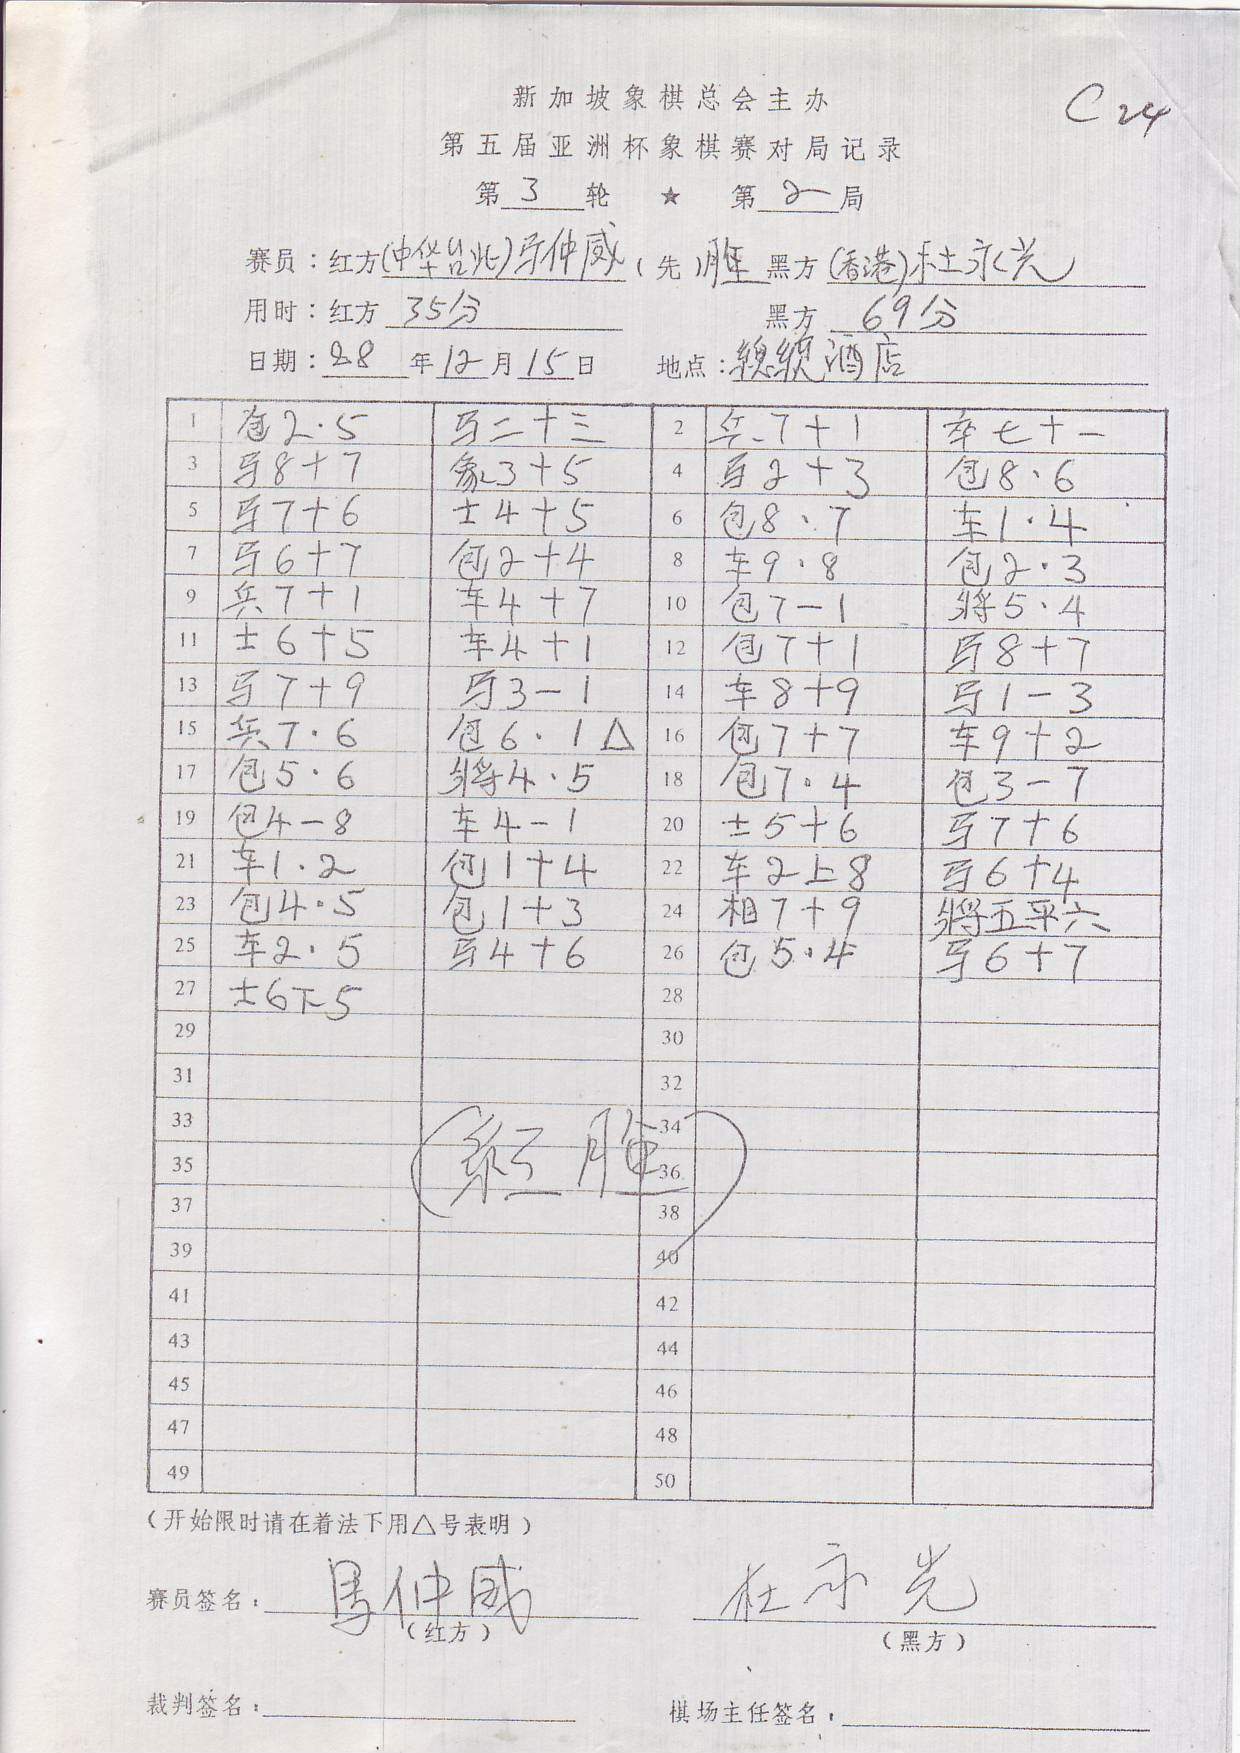 C24
新加坡象棋总会主办
第五届亚洲杯象棋赛对局记录
第 3 轮 ★ 第 2 局
赛员：红方(中华台北)马仲威（先）胜 黑方(香港)杜永光
用时：红方 35分 黑方 69分
日期：88 年 12 月 15 日 地点：总统酒店
1 包2·5 马二十三 2 兵7+1 卒七十一
3 马8+7 象3+5 4 马2+3 包8·6
5 马7+6 士4+5 6 包8·7 车1·4
7 马6+7 包2+4 8 车9·8 包2·3
9 兵7+1 车4+7 10 包7-1 將5·4
11 士6+5 车4+1 12 包7+1 马8+7
13 马7+9 马3-1 14 车8+9 马1-3
15 兵7·6 包6·1△ 16 包7+7 车9+2
17 包5·6 將4·5 18 包7·4 包3-7
19 包4-8 车4-1 20 士5+6 马7+6
21 车1·2 包1+4 22 车2上8 马6+4
23 包4·5 包1+3 24 相7+9 將五平六
25 车2·5 马4+6 26 包5·4 马6+7
27 士6下5 28
29 30
31 32
33 34
(红胜)
35 36
37 38
39 40
41 42
43 44
45 46
47 48
49 50
（开始限时请在着法下用△号表明）
赛员签名：馬仲威 杜永光
（红方） （黑方）
裁判签名： 棋场主任签名：